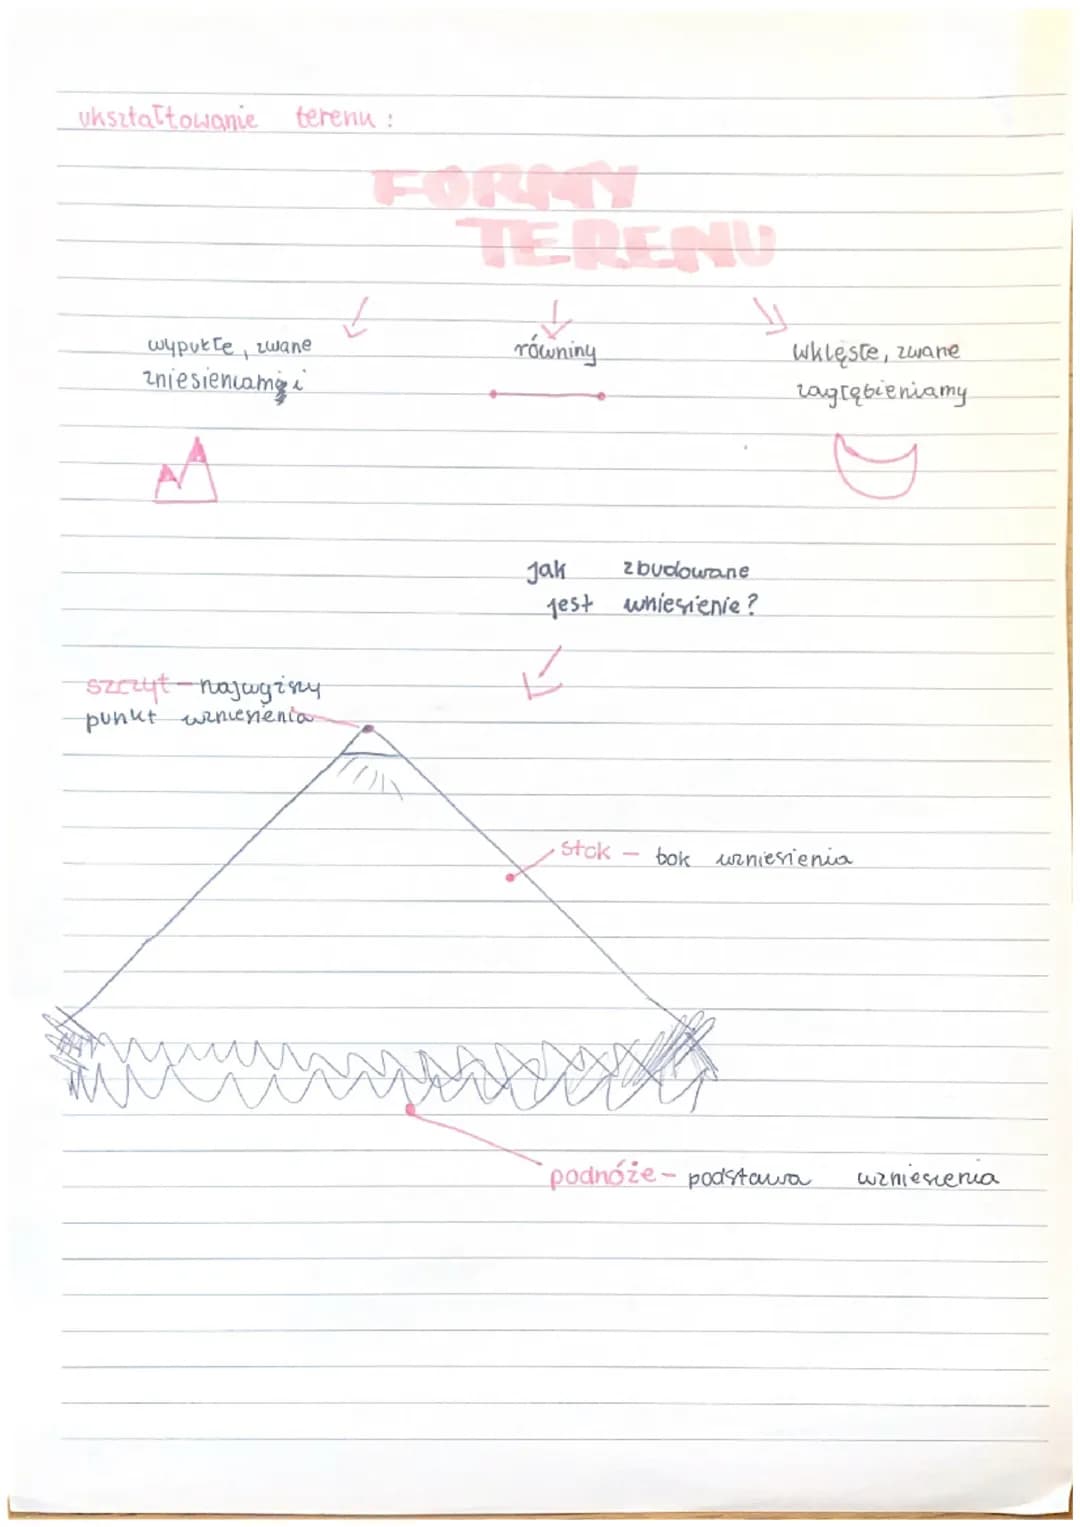 ukształtowanie terenu:
FORMY
TERENU
wypukłe, zwane
zniesieniami
równiny
wklęsłe, zwane
zagłębieniamy
jak zbudowane
jest wniesienie?
szczyt - najwyższy
punkt wzniesienia
stok - bok wzniesienia
podnóże - podstawa wzniesienia